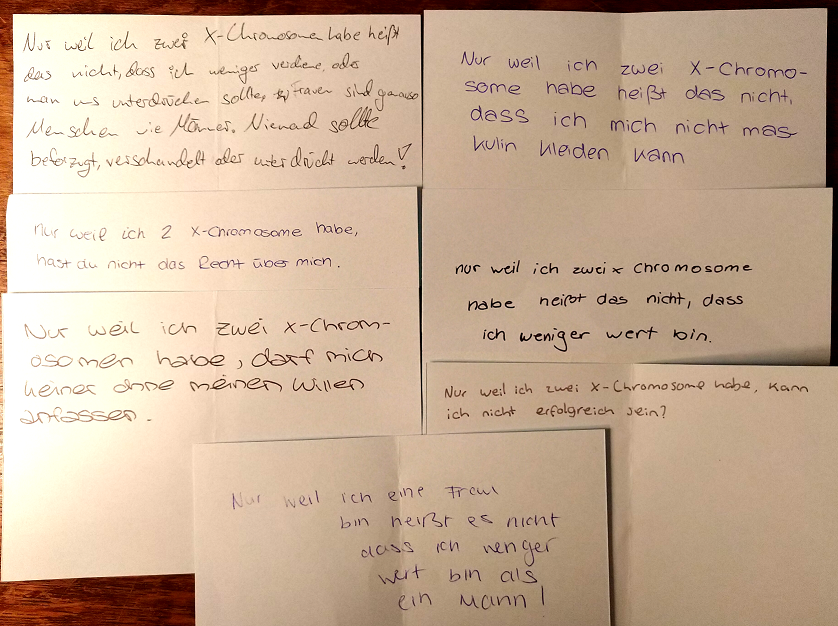 Nur weil ich zwei X-Chromosomen habe heißt
das nicht, dass ich weniger verdiene, oder
man uns unterdrücken sollte, Frauen sind genauso
Menschen wie Männer. Niemad sollte
beforzugt, verschandelt oder unterdrückt werden!
Nur weil ich zwei X-Chromo-
some habe heißt das nicht,
dass ich mich nicht mas-
kulin kleiden kann
Nur weil ich 2 X-Chromosome habe,
hast du nicht das Recht über mich.
nur weil ich zwei x Chromosome
habe heißt das nicht, dass
ich weniger wert bin.
Nur weil ich zwei X-Chrom-
osomen habe, darf mich
keiner ohne meinen Willen
anfassen.
Nur weil ich zwei X-Chromosome habe, kann
ich nicht erfolgreich sein?
Nur weil ich eine Frau
bin heißt es nicht
dass ich wenger
wert bin als
ein Mann!